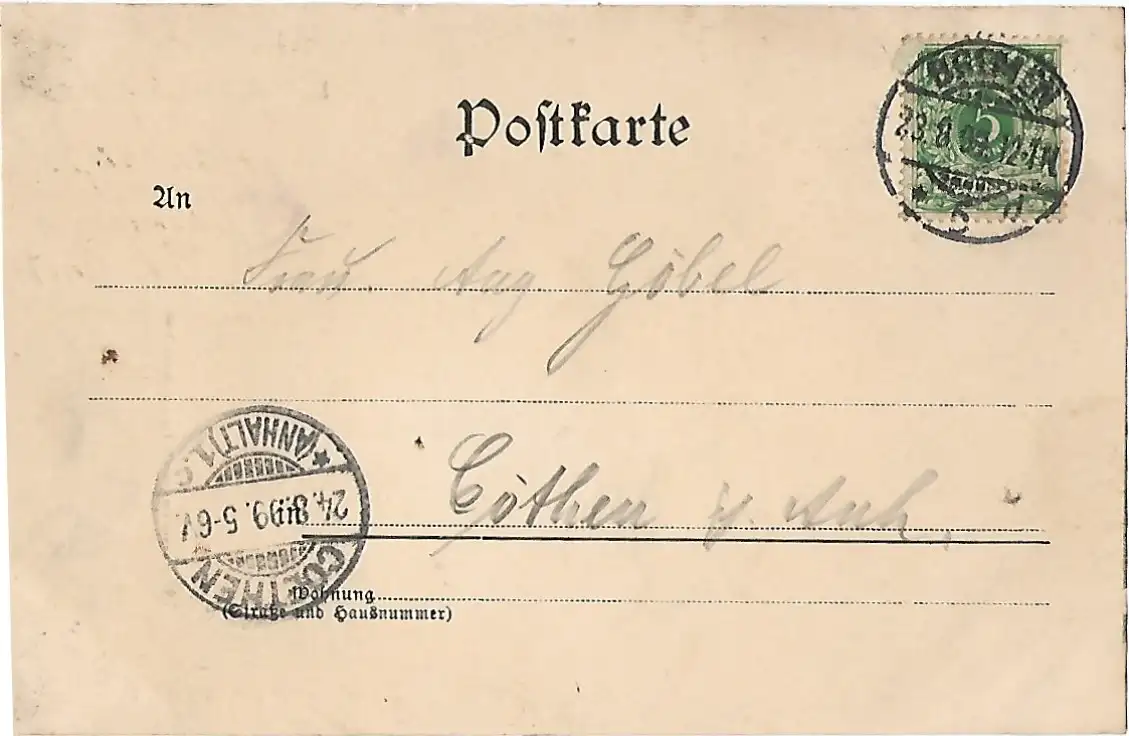 Postkarte
BREMEN
23.8.99. 12-1N
* 5 d
5
An
Frau Aug Göbel
(ANHALT) 1.
24.8.99. 5-6V.
COETHEN
in
Cöthen i/ Anh.
Wohnung
(Straße und Hausnummer)